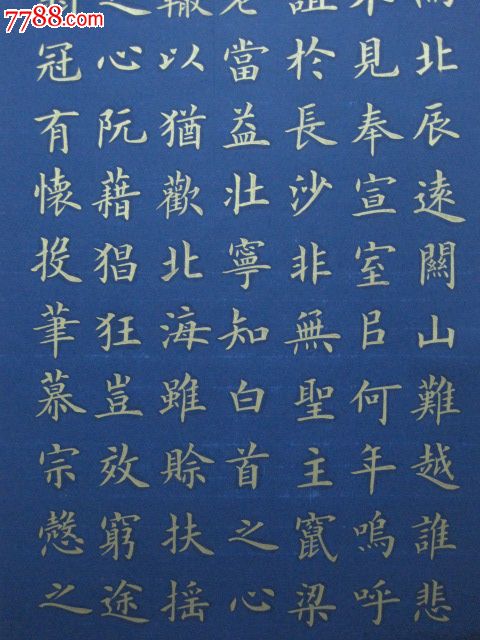 7788.com
而北辰遠關山難越誰悲
不見奉宣室㠯何年嗚呼
誼於長沙非無聖主竄梁
老當益壯寧知白首之心
轍以猶歡北海雖賒扶搖
之心阮藉猖狂豈效窮途
冠有懷投筆慕宗慤之